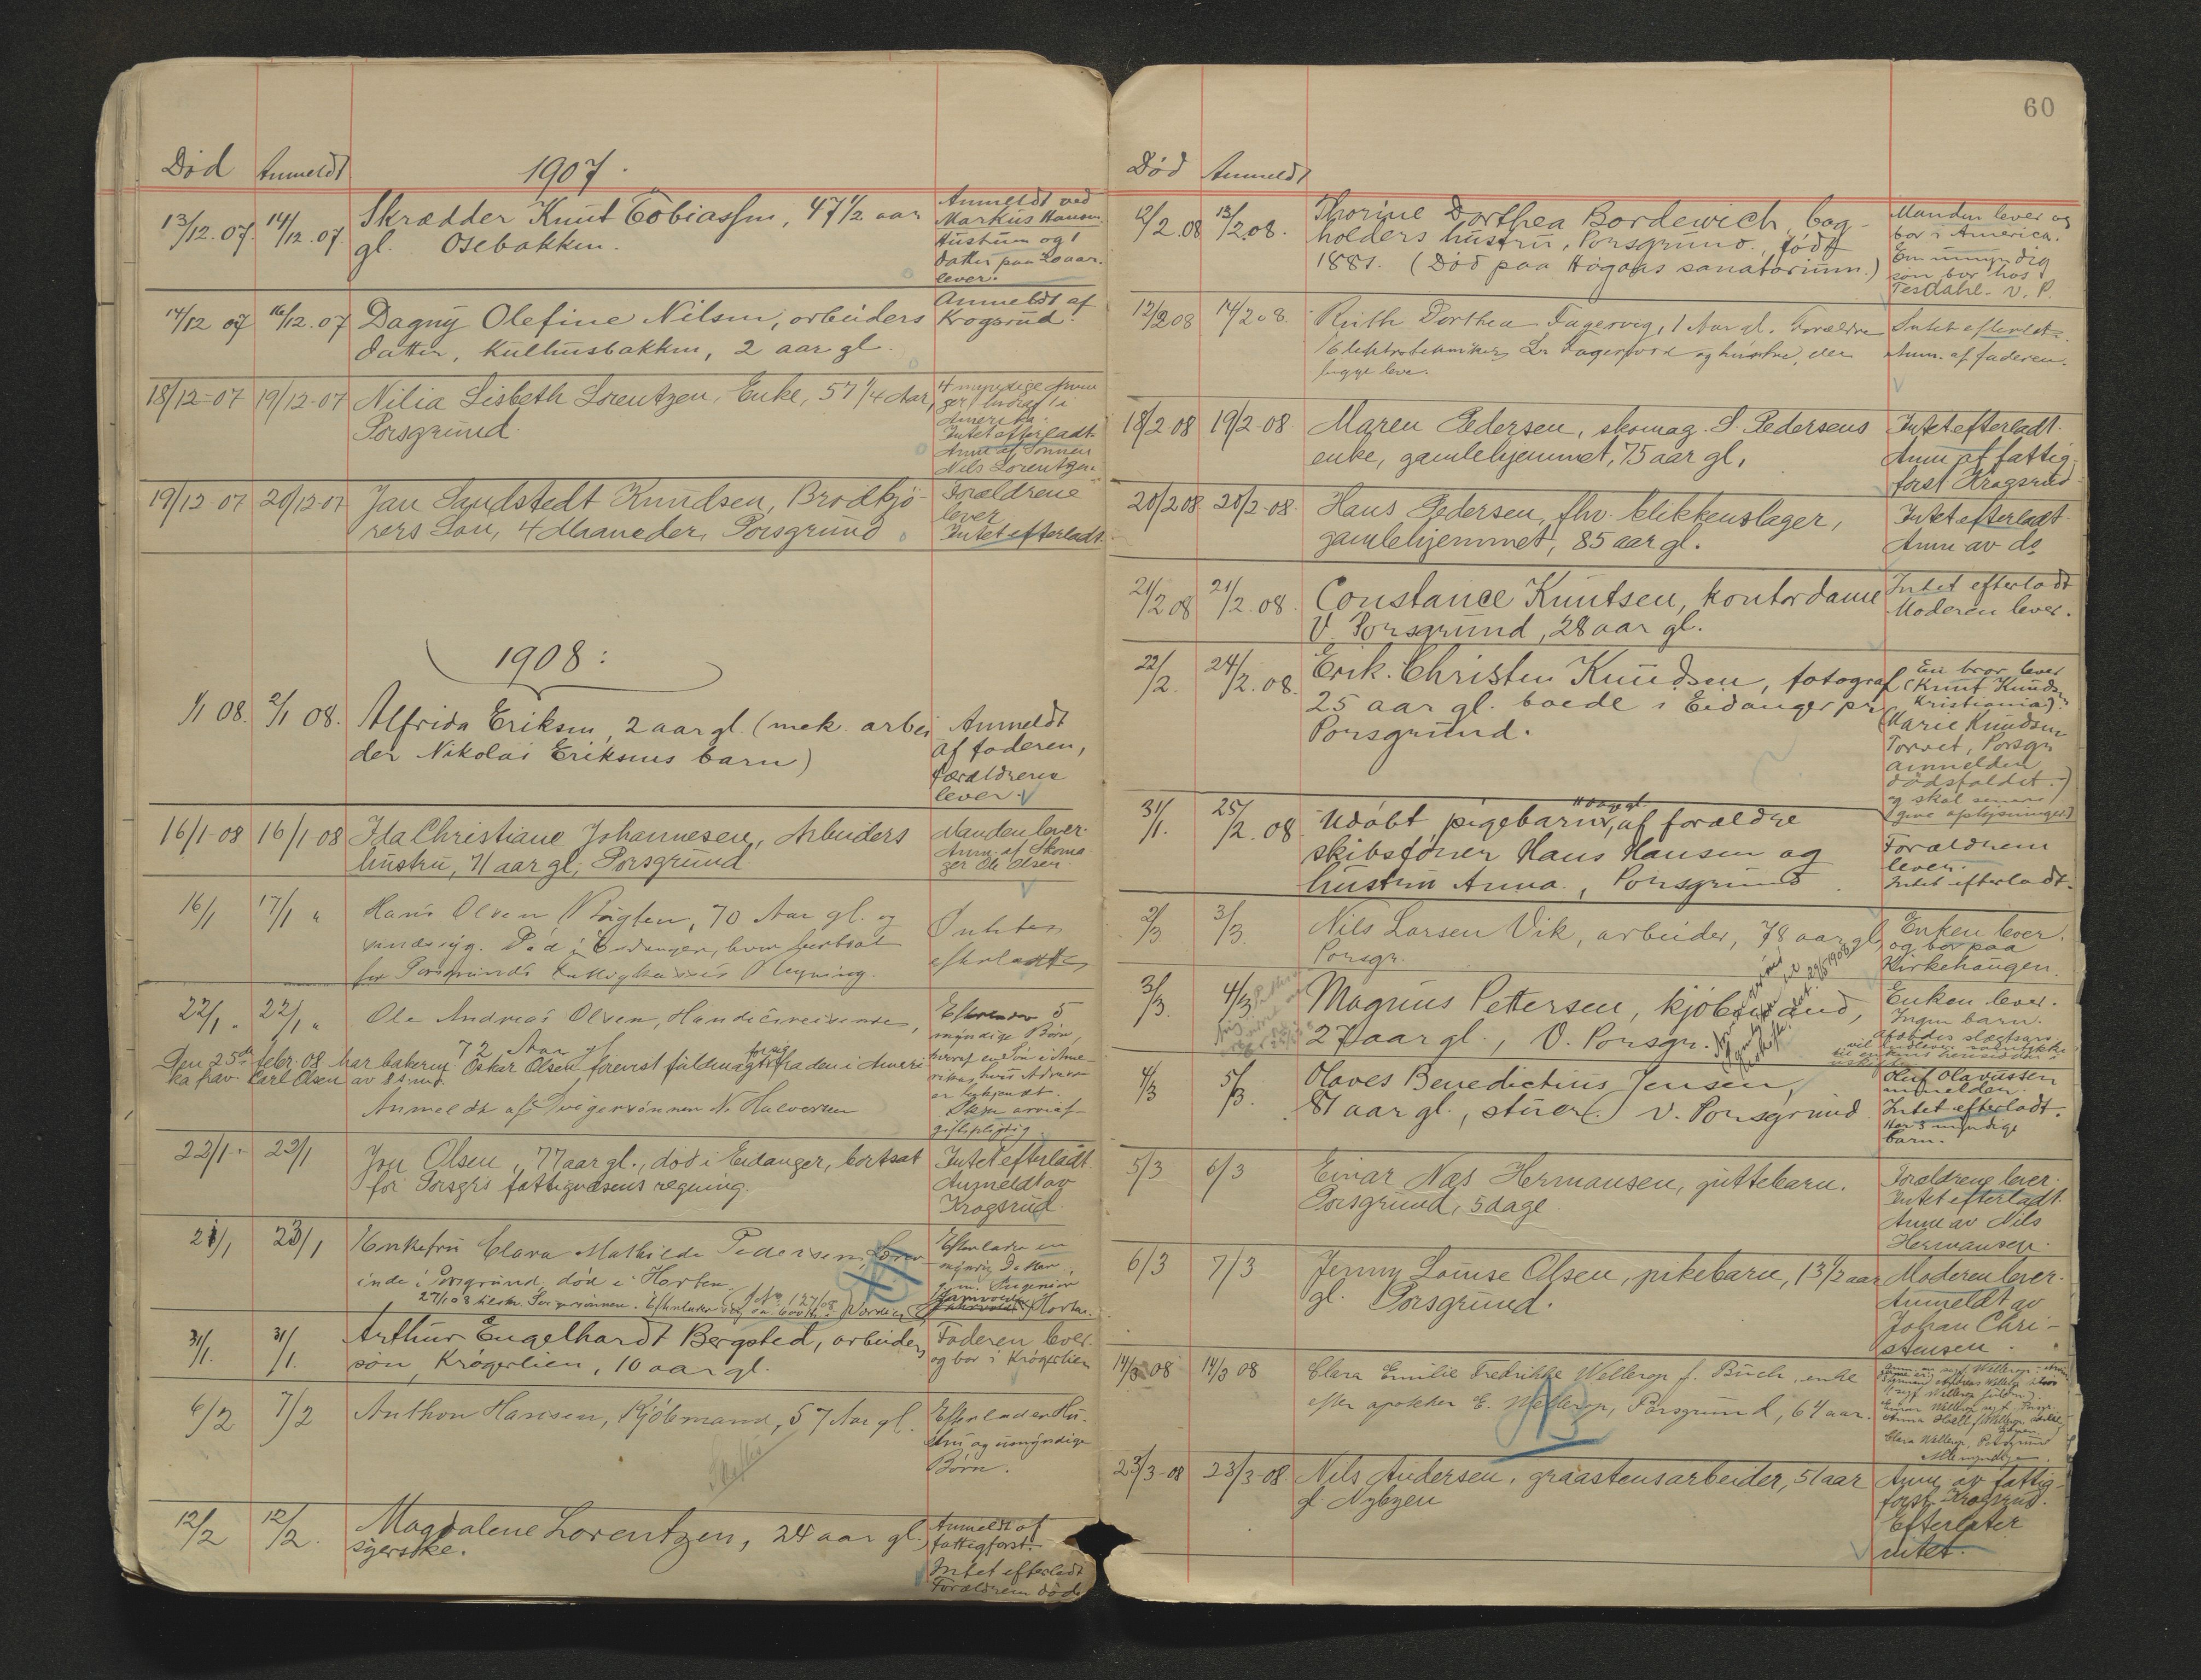 Död Anmeldt 1907.
13/12.07. 14/12.07 Skrædder Knut Tobiassen, 47 1/2 aar
gl. Osebakken.
Anmeldt ved
Markus Hansen.
Hustrum og 1
datter paa 20 aar.
lever.
14/12 07 16/12.07 Dagny Olefine Nilsen, arbeiders
datter, Kulhusbakken, 2 aar gl.
Anmeldt af
Krogsrud.
18/12-07 19/12-07 Nilia Lisbeth Lorentzen, Enke, 57 1/4 Aar,
Porsgrund.
4 myndige
hvoraf 1 i
Amerika.
Intet efterladt.
Anm af Sønnen
Nils Lorentzen
19/12-07 20/12-07 Jan Sandstedt Knudsen, Brødkjö-
rers Søn, 4 Maaneder, Porsgrund
Forældrene
lever
Intet efterladt.
1908:
1/1 08. 2/1 08. Alfrida Eriksen, 2 aar gl. (mek. arbei
der Nikolai Eriksens barn)
Anmeldt
af faderen,
Forældrene
lever.
16/1-08 16/1-08 Ida Christiane Johannesen, Arbeiders
hustru, 71 aar gl, Porsgrund
Manden lever.
Anm. af Skoma
ger Ole Olsen.
16/1 17/1 " Hans Olsen Vogten, 70 Aar gl. og
sindssyg. Død i Eidanger, hvor bortsat
for Porsgrunds Fattigkasses Regning.
Intet
efterladt
22/1 " 22/1 " Ole Andreas Olsen, Handelsreisende,
72 Aar gl.
Den 25de febr. 08 har bakerm Oskar Olsen forevist fuldmagt for sig fra den i Ameri
ka frav. Carl Olsen av 8 ds. md.
Anmeldt af Svigersønnen N. Halvorsen
Efterlader 5
myndige Børn,
hvoraf en Søn i Ame-
rika, hvis Adresse
er ubekjendt.
arveaf-
giftspligtig
22/1 " 22/1 Jon Olsen, 77 aar gl., död i Eidanger, bortsat
for Porsgr's fattigvæsens regning.
Intet efterladt.
Anmeldt av
Krogsrud
21/1 23/1 Enkefru Clara Mathilde Pedersen,
inde i Porsgrund, död i Horten
27/1 08
Efterlader en
myndig Datter,
g. m. Ingeniør
Horten.
31/1. 31/1. Arthur Engelhardt Bergsted, arbeiders
søn, Krøgerlien, 10 aar gl.
Faderen lever
og bor i Krögerlien
6/2 7/2 Anthon Hansen, Kjöbmand, 57 Aar gl.
Efterlader Hu-
stru og umyndige
Børn.
Skifte
12/2 12/2. Magdalene Lorentzen, 24 aar gl.
syerske.
Anmeldt af
fattigforst.
Intet efterladt
Forældrene döde
60
Död Anmeldt
12/2.08 13/2.08. Thorine Dorthea Bordewich, bog-
holders hustru, Porsgrund, födt
1881. (Död paa Högaas sanatorium.)
Manden lever og
bor i America.
En umyndig
søn bor hos
Tesdahl. V. P.
12/2 08 14/2 08. Ruth Dorthea Fagervig, 1 Aar gl. Forældre
Elektrotekniker og hustru, der
begge leve.
Intet efterladt.
Anm. af faderen.
18/2 08 19/2-08 Maren Pedersen, skomag. S. Pedersens
enke, gamlehjemmet, 75 aar gl.
Intet efterladt.
Anm af fattig-
forst Krogsrud
20/2 08 20/2-08. Hans Pedersen, fhv. blikkenslager,
gamlehjemmet, 85 aar gl.
Intet efterladt
Anm av do
21/2 08 21/2.08. Constance Knutsen, kontordame
V. Porsgrund, 28 aar gl.
Intet efterladt
Moderen lever.
22/2. 24/2.08. Erik Christen Knudsen, fotograf
25 aar gl. boede i Eidanger pr
Porsgrund.
En bror lever
(Knut Knudsen
Kristiania).
(Marie Knudsen
Torvet, Porsgr
anmelder
dödsfaldet.)
og skal senere
(give oplysninger)
31/1. 25/2.08 Udöbt pigebarn, af forældre
skibsförer Hans Hansen og
hustru Anna., Porsgrund.
Forældrene
lever.
Intet efterladt.
2/3 3/3. Nils Larsen Vik, arbeider, 78 aar gl,
Porsgr.
Enken lever.
og bor paa
Kirkehaugen.
3/3. 4/3. Magnus Pettersen, kjöbmand,
27 aar gl., V. Porsgr.
Enken lever.
Ingen barn.
4/3 5/3. Olaves Benedictius Jensen,
81 aar gl., stuer. V. Porsgrund
Oluf Olavussen
anmelder.
Intet efterladt.
Har 3 myndige
barn.
5/3 6/3 Einar Næs Hermansen, guttebarn.
Porsgrund, 5 dage
Forældrene lever.
Intet efterladt.
Anm av Nils
Hermansen.
6/3 7/3 Jenny Louise Olsen, pikebarn, 13 1/2 aar
gl. Porsgrund.
Moderen lever.
Anmeldt av
Johan Chri-
stensen.
14/3 08 14/3 08 Clara Emilie Fredrikke Wellerop f. Buch, enke
efter apotheker E. Wellerop, Porsgrund, 64 aar.
NB
Clara Wellerop, Porsgrund
Alle myndige.
23/3-08 23/3-08 Nils Andersen, graastensarbeider, 51 aar
gl. Nybyen
Anm av fattig-
forst. Krogsrud.
Efterlater
intet.